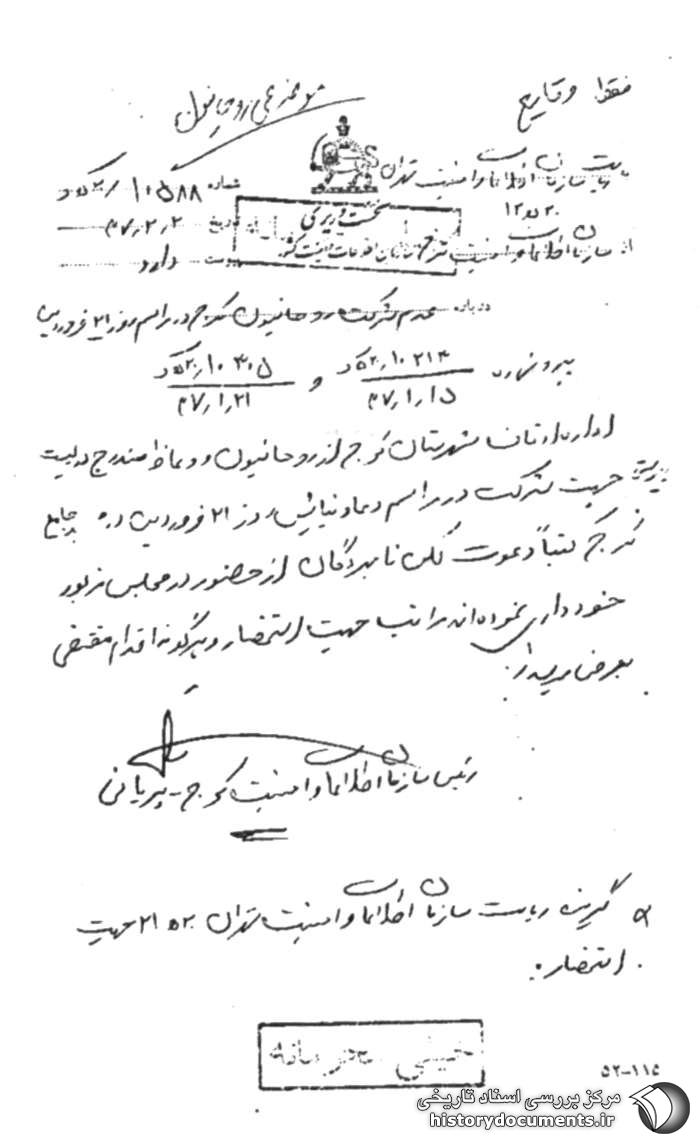 فقط وقایع
به ریاست سازمان اطلاعات و امنیت تهران
شماره ۱۰۵۸۸
۲۰ ه ۱۲
تاریخ ۴۷/۲/۲
نخست وزیری
سازمان اطلاعات و امنیت کشور
از سازمان اطلاعات و امنیت کرج
پیوست دارد
درباره عدم شرکت روحانیون کرج در مراسم روز ۲۱ فروردین
پیرو شماره ۱۰۲۱۴ / ۲۰ ه ک
۴۷/۱/۱۵
و ۱۰۴۰۵ / ۲۰ ه ک
۴۷/۱/۲۱
اداره اوقاف شهرستان کرج از روحانیون و وعاظ مندرج در لیست
پیوستی جهت شرکت در مراسم دعا و نیایش روز ۲۱ فروردین در مسجد جامع
کرج کتباً دعوت لکن نامبردگان از حضور در مجلس مزبور
خودداری نموده‌اند مراتب جهت استحضار و هرگونه اقدام مقتضی
بعرض میرسد
رئیس سازمان اطلاعات و امنیت کرج - پیرپائی
گیرنده ریاست سازمان اطلاعات و امنیت تهران ۲۰ ه ۲۱ جهت
استحضار
خیلی محرمانه
۵۲-۱۱۵
مرکز بررسی اسناد تاریخی
historydocuments.ir